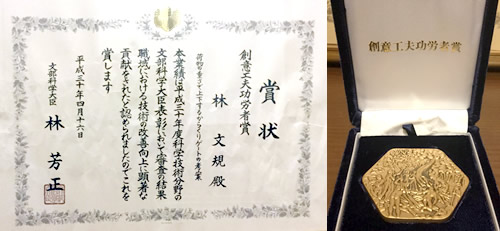 賞状
創意工夫功労者賞
林 文規 殿
荷物の重さで上下するからくりゲートの考案
本業績は平成三十年度科学技術分野の
文部科学大臣表彰において審査の結果
職域における技術の改善向上に顕著な
貢献をされたと認められましたのでこれを
賞します
平成三十年四月十六日
文部科学大臣 林 芳正
創意工夫功労者賞